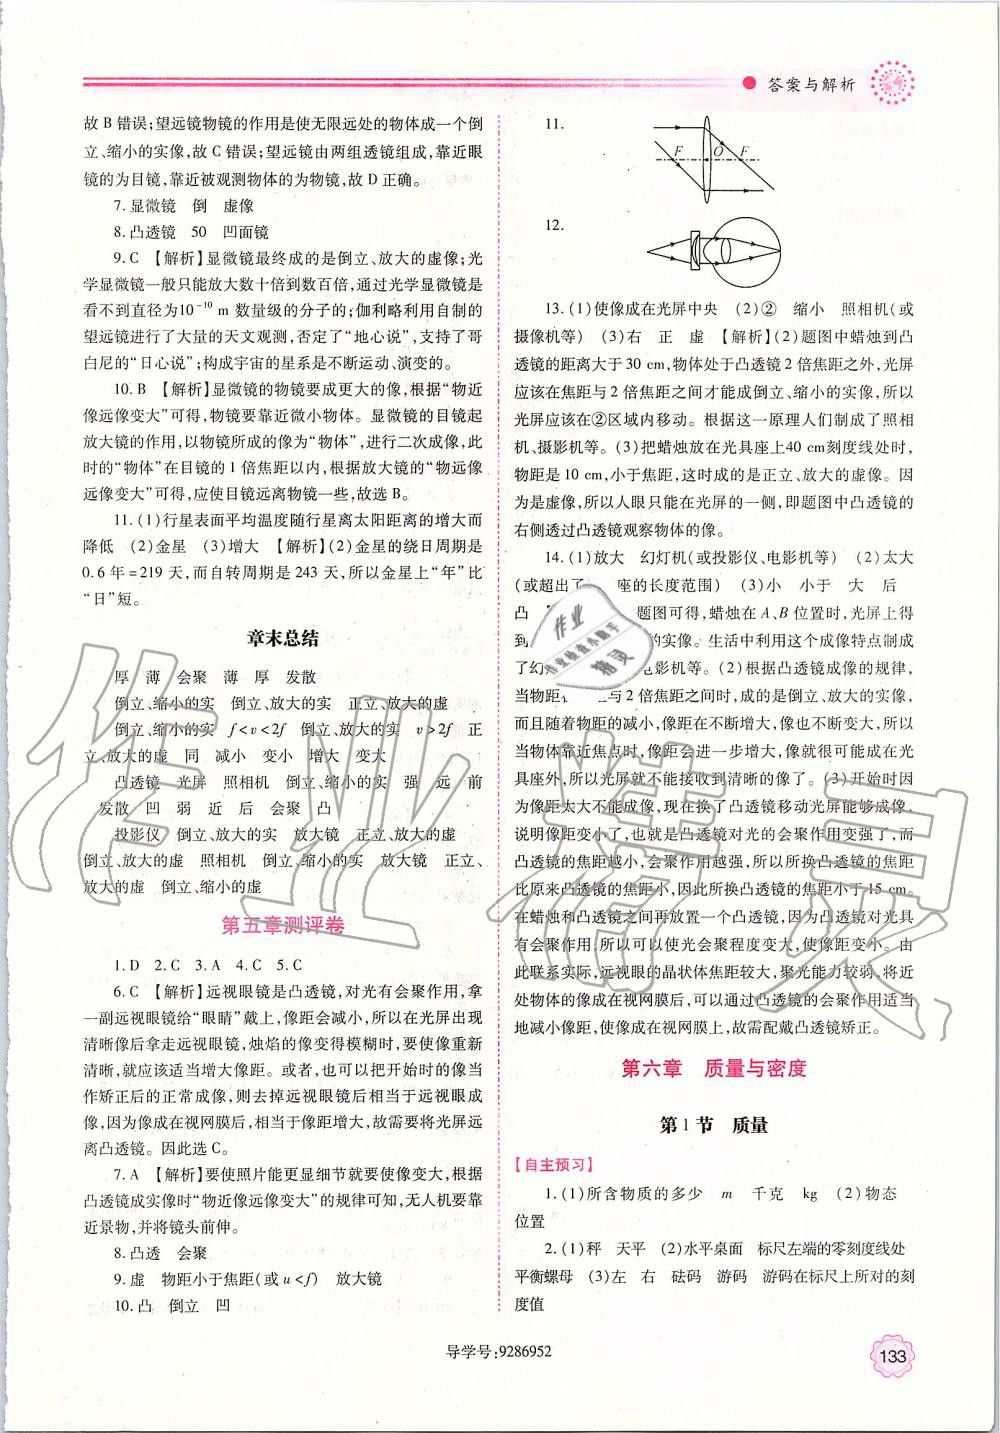 答案与解析
故 B 错误;望远镜物镜的作用是使无限远处的物体成一个倒
立、缩小的实像,故 C 错误;望远镜由两组透镜组成,靠近眼
镜的为目镜,靠近被观测物体的为物镜,故 D 正确。
7.显微镜 倒 虚像
8.凸透镜 50 凹面镜
9.C 【解析】显微镜最终成的是倒立、放大的虚像;光
学显微镜一般只能放大数十倍到数百倍,通过光学显微镜是
看不到直径为10⁻¹⁰ m 数量级的分子的;伽利略利用自制的
望远镜进行了大量的天文观测,否定了“地心说”,支持了哥
白尼的“日心说”;构成宇宙的星系是不断运动、演变的。
10.B 【解析】显微镜的物镜要成更大的像,根据“物近
像远像变大”可得,物镜要靠近微小物体。显微镜的目镜起
放大镜的作用,以物镜所成的像为“物体”,进行二次成像,此
时的“物体”在目镜的 1 倍焦距以内,根据放大镜的“物远像
远像变大”可得,应使目镜远离物镜一些,故选 B。
11.(1)行星表面平均温度随行星离太阳距离的增大而
降低 (2)金星 (3)增大 【解析】(2)金星的绕日周期是
0.6 年=219 天,而自转周期是 243 天,所以金星上“年”比
“日”短。
章末总结
厚 薄 会聚 薄 厚 发散
倒立、缩小的实 倒立、放大的实 正立、放大的虚
倒立、缩小的实 f<v<2f 倒立、放大的实 v>2f 正
立、放大的虚 同 减小 变小 增大 变大
凸透镜 光屏 照相机 倒立、缩小的实 强 远 前
发散 凹 弱 近 后 会聚 凸
投影仪 倒立、放大的实 放大镜 正立、放大的虚
倒立、放大的虚 照相机 倒立、缩小的实 放大镜 正立、
放大的虚 倒立、缩小的虚
第五章测评卷
1.D 2.C 3.A 4.C 5.C
6.C 【解析】远视眼镜是凸透镜,对光有会聚作用,拿
一副远视眼镜给“眼睛”戴上,像距会减小,所以在光屏出现
清晰像后拿走远视眼镜,烛焰的像变得模糊时,要使像重新
清晰,就应该适当增大像距。或者,也可以把开始时的像当
作矫正后的正常成像,则去掉远视眼镜后相当于远视眼成
像,因为像成在视网膜后,相当于像距偏大,故需要将光屏远
离凸透镜。因此选 C。
7.A 【解析】要使照片能更显细节就要使像变大,根据
凸透镜成实像时“物近像远像变大”的规律可知,无人机要靠
近景物,并将镜头前伸。
8.凸透 会聚
9.虚 物距小于焦距(或 u<f) 放大镜
10.凸 倒立 凹
11.
F O F
12.
13.(1)使像成在光屏中央 (2)② 缩小 照相机(或
摄像机等) (3)右 正 虚 【解析】(2)题图中蜡烛到凸
透镜的距离大于 30 cm,物体处于凸透镜 2 倍焦距之外,光屏
应该在焦距与 2 倍焦距之间才能成倒立、缩小的实像,所以
光屏应该在②区域内移动。根据这一原理人们制成了照相
机、摄影机等。(3)把蜡烛放在光具座上40 cm刻度线处时,
物距是 10 cm,小于焦距,这时成的是正立、放大的虚像。因
为是虚像,所以人眼只能在光屏的一侧,即题图中凸透镜的
右侧透过凸透镜观察物体的像。
14.(1)放大 幻灯机(或投影仪、电影机等) (2)太大
(或超出了 座的长度范围) (3)小 小于 大 后
凸 题图可得,蜡烛在 A、B 位置时,光屏上得
到 的实像。生活中利用这个成像特点制成
了幻 电影机等。(2)根据凸透镜成像的规律,
当物距 与 2 倍焦距之间时,成的是倒立、放大的实像,
而且随着物距的减小,像距在不断增大,像也不断变大,所以
当物体靠近焦点时,像距会进一步增大,像就很可能成在光
具座外,所以光屏就不能接收到清晰的像了。(3)开始时因
为像距太大不能成像,现在换了凸透镜移动光屏能够成像,
说明像距变小了,也就是凸透镜对光的会聚作用变强了,而
凸透镜的焦距越小,会聚作用越强,所以所换凸透镜的焦距
比原来凸透镜的焦距小,因此所换凸透镜的焦距小于 15 cm。
在蜡烛和凸透镜之间再放置一个凸透镜,因为凸透镜对光具
有会聚作用,所以可以使光会聚程度变大,使像距变小。由
此联系实际,远视眼的晶状体焦距较大,聚光能力较弱,将近
处物体的像成在视网膜后,可以通过凸透镜的会聚作用适当
地减小像距,使像成在视网膜上,故需配戴凸透镜矫正。
第六章 质量与密度
第 1 节 质量
【自主预习】
1.(1)所含物质的多少 m 千克 kg (2)物态
位置
2.(1)秤 天平 (2)水平桌面 标尺左端的零刻度线处
平衡螺母 (3)左 右 砝码 游码 游码在标尺上所对的刻
度值
导学号:9286952
133
作业
作业检查小助手
精灵
作业精灵